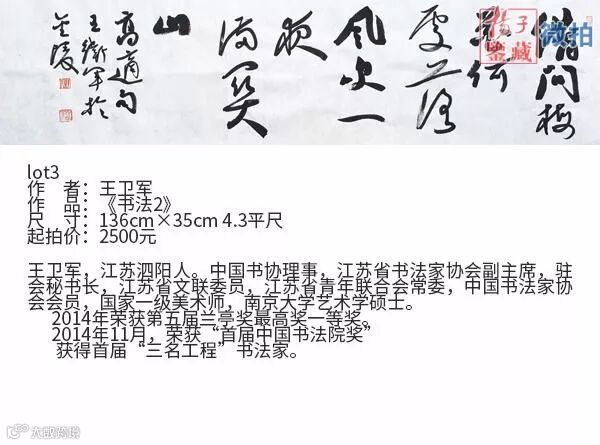 借问梅
花何
處落
風吹一
夜
满関
山
高適句
王衛軍於
金陵
揚子
鉴藏
微拍
lot3
作　者：王卫军
作　品：《书法2》
尺　寸：136cm×35cm 4.3平尺
起拍价：2500元
王卫军，江苏泗阳人。中国书协理事，江苏省书法家协会副主席，驻
会秘书长，江苏省文联委员，江苏省青年联合会常委，中国书法家协
会会员，国家一级美术师，南京大学艺术学硕士。
2014年荣获第五届兰亭奖最高奖一等奖。
2014年11月，荣获“首届中国书法院奖”
获得首届“三名工程”书法家。
大数跨境